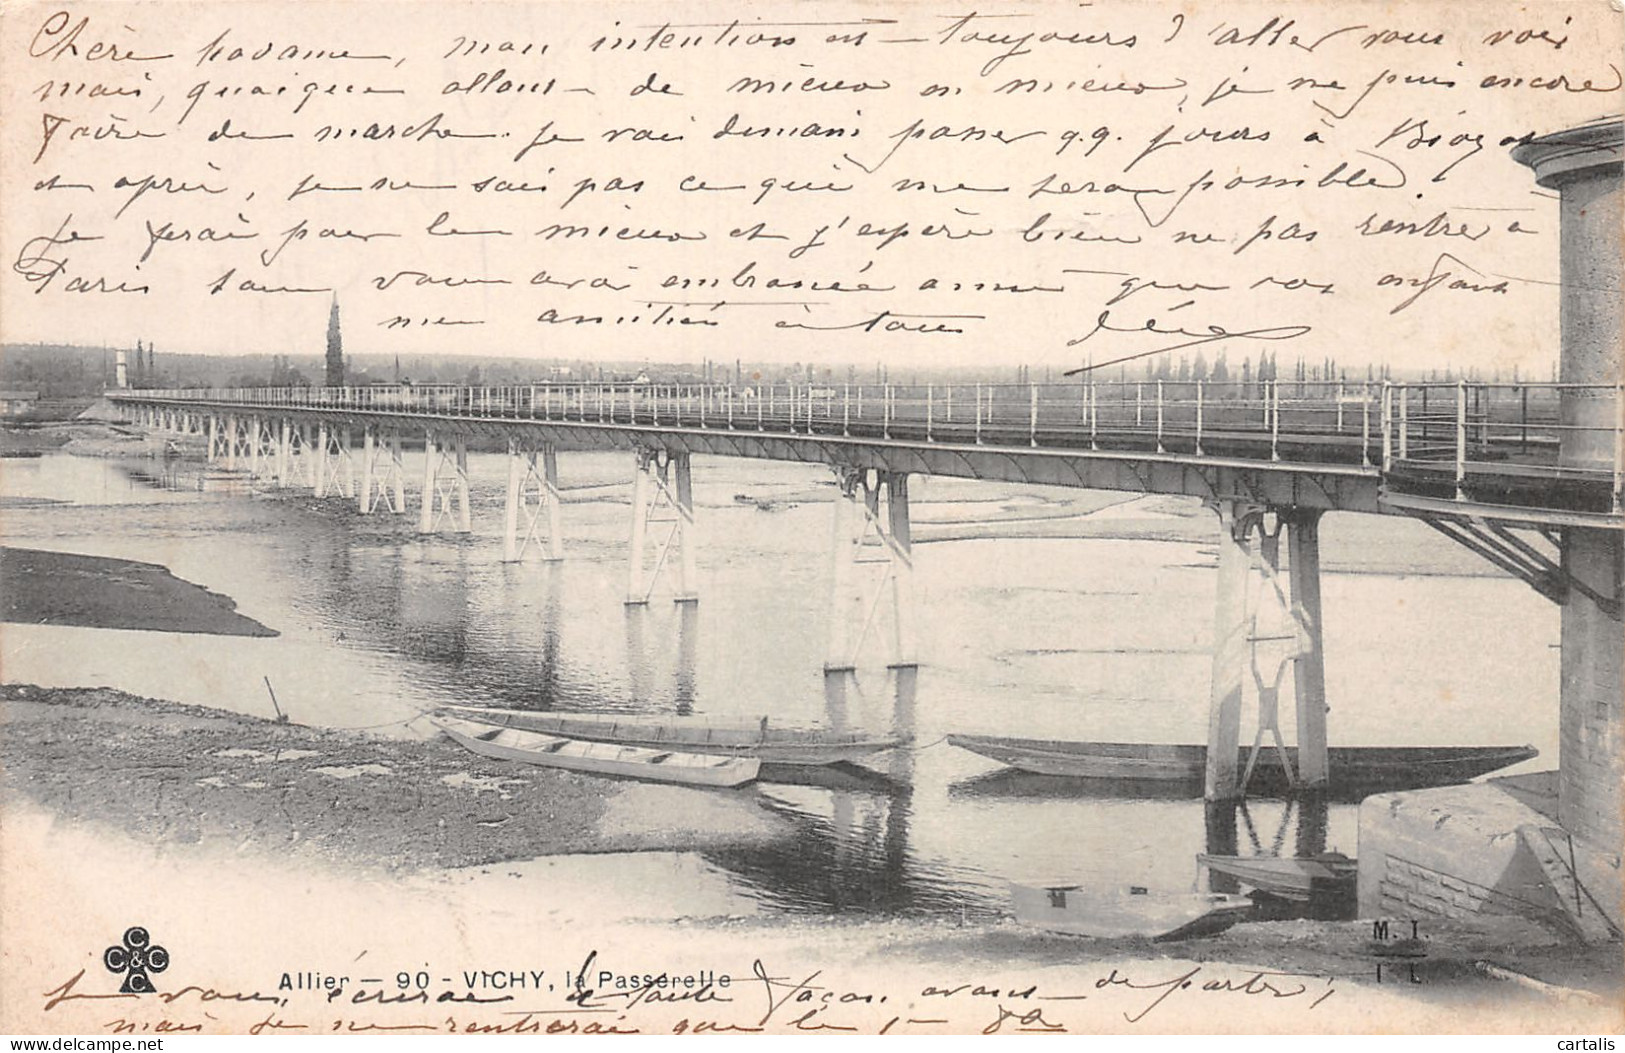 Chère Madame, mon intention est toujours d'aller vous voir
mais, quoique allant de mieux en mieux, je ne puis encore
faire de marche. Je vais demain passer q.q. jours à
et après, je ne sais pas ce qui me sera possible.
Je ferai pour le mieux et j'espère bien ne pas rentrer à
Paris sans vous avoir embrassée ainsi que vos enfants
mes amitiés à tous
C C & C C
Allier - 90 - VICHY, la Passerelle
M. T. I. L.
Je vous écrirai de toute façon avant de partir,
mais je ne rentrerai que le 1er 8bre
cartalis